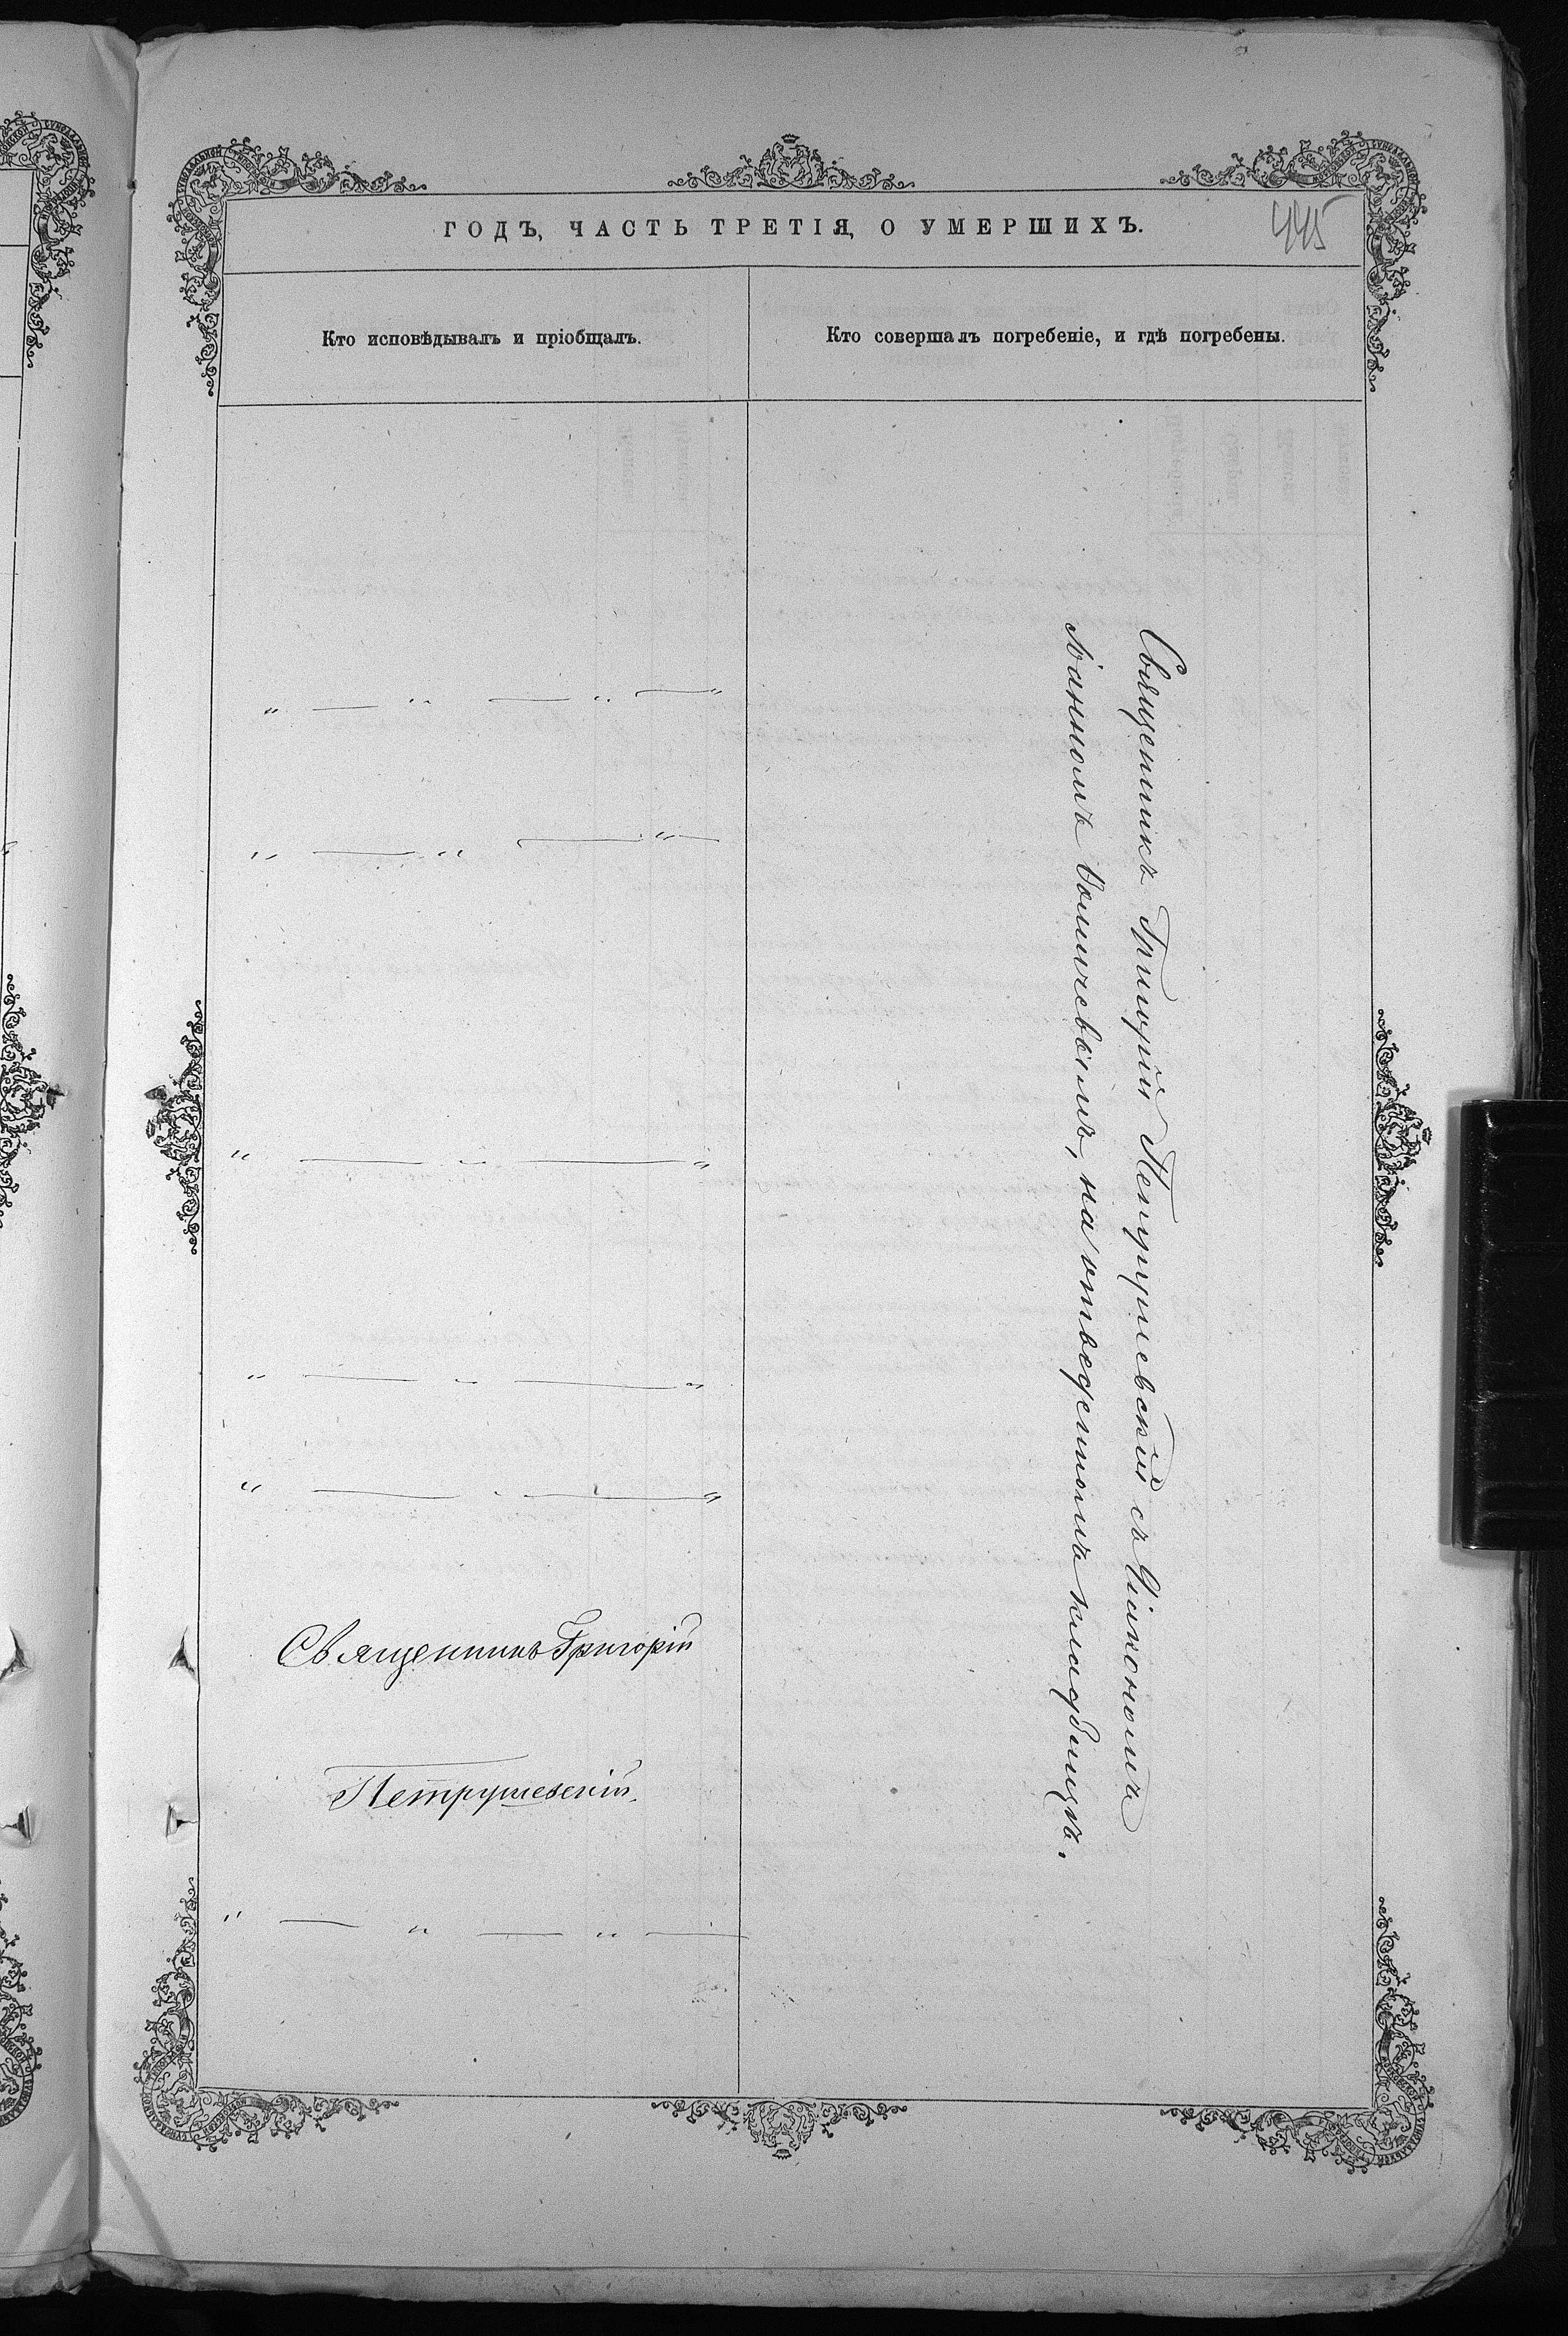 ГОДЪ, ЧАСТЬ ТРЕТІЯ, О УМЕРШИХЪ.
445
Кто исповѣдывалъ и пріобщалъ.
Кто совершалъ погребеніе, и гдѣ погребены.
„ — „ — „ — „
„ — „ — „ —
„ — „ — „
„ — „ — „
„ — „ — „
Священникъ Григорій
Петрушевскій.
„ — „ — „ —
Священникъ Григорій Петрушевскій съ Діакономъ
Іанномъ на отведенномъ кладбищѣ.